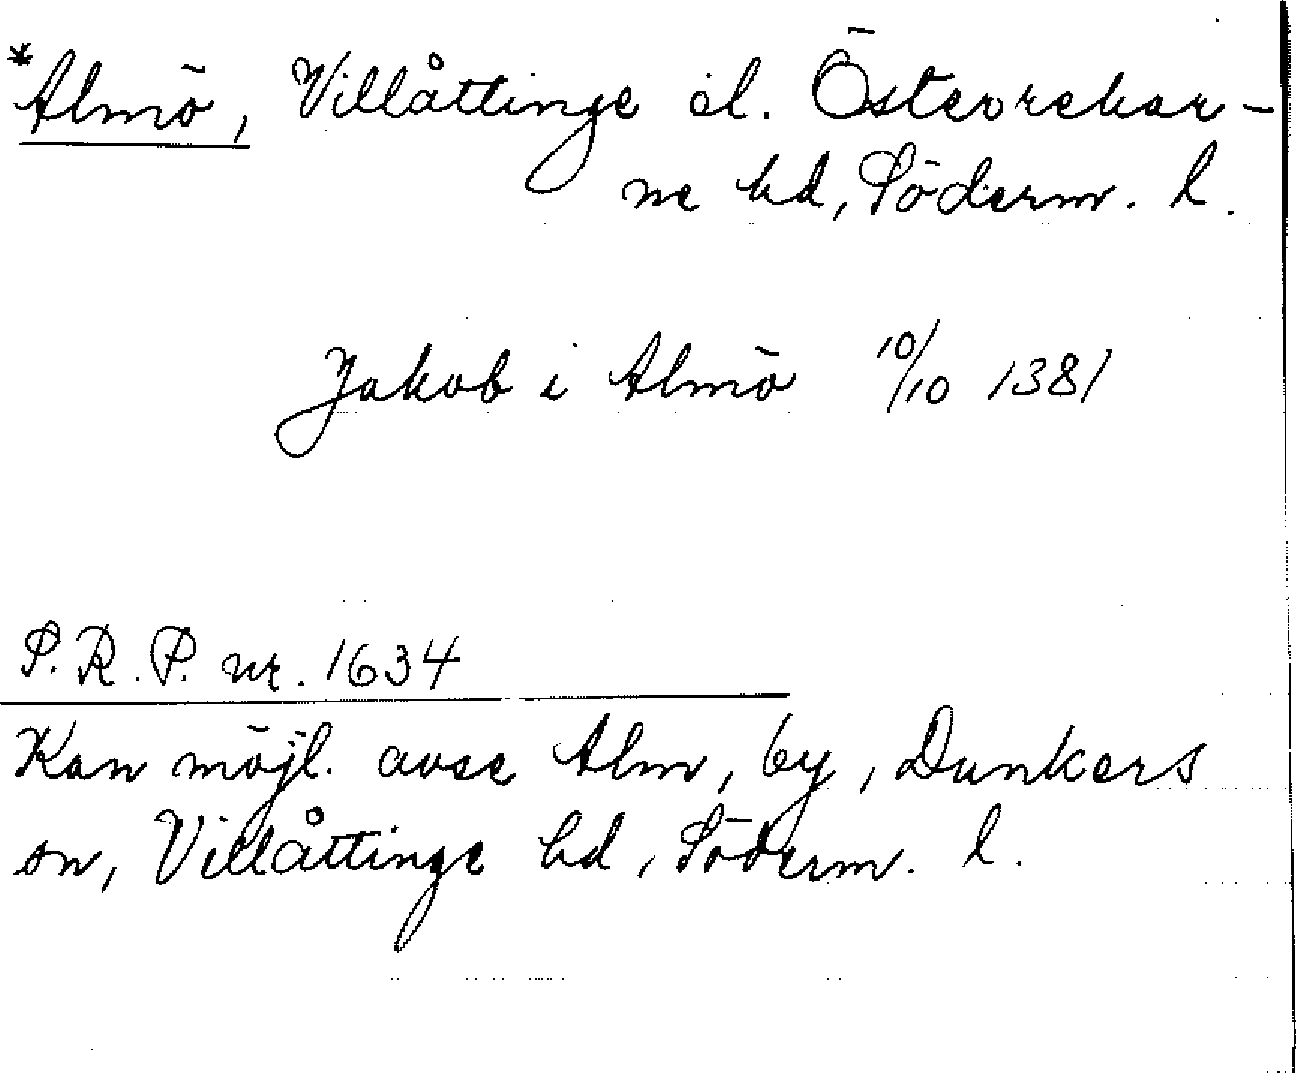 *Almö, Villåttinge el. Österrekar-
ne hd, Söderm. l.
Jakob i Almö 10/10 1381
S.R.P. nr. 1634
Kan möjl. avse Alm, by, Dunkers
sn, Villåttinge hd, Söderm. l.